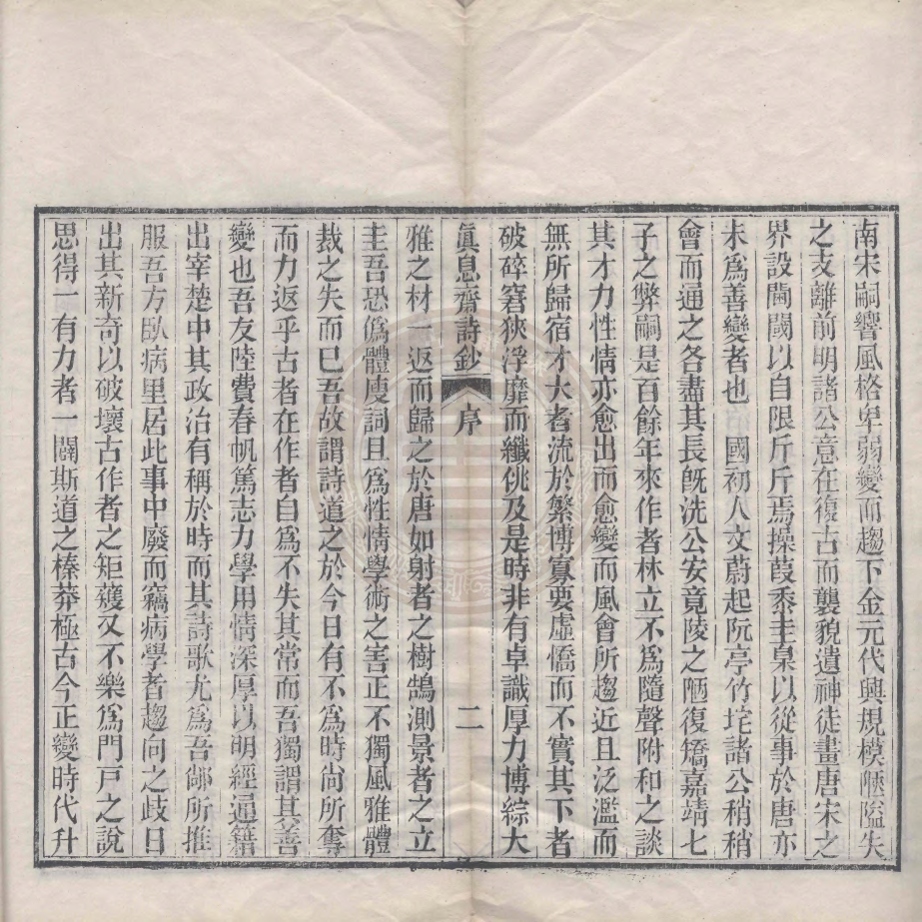 南宋嗣響風格卑弱變而趨下金元代興規模陿隘失
之支離前明諸公意在復古而襲貌遺神徒畫唐宋之
界設閫閾以自限斤斤焉操葭黍圭臬以從事於唐亦
未爲善變者也國初人文蔚起阮亭竹垞諸公稍稍
會而通之各盡其長旣洗公安竟陵之陋復矯嘉靖七
子之弊嗣是百餘年來作者林立不爲隨聲附和之談
其才力性情亦愈出而愈變而風會所趨近且泛濫而
無所歸宿才大者流於繁博寡要虛憍而不實其下者
破碎窘狹浮靡而纖佻及是時非有卓識厚力博綜大
眞息齋詩鈔 序 二
雅之材一返而歸之於唐如射者之樹鵠測景者之立
圭吾恐僞體廋詞且爲性情學術之害正不獨風雅體
裁之失而已吾故謂詩道之於今日有不爲時尙所奪
而力返乎古者在作者自爲不失其常而吾獨謂其善
變也吾友陸費春帆篤志力學用情深厚以明經通籍
出宰楚中其政治有稱於時而其詩歌尤爲吾鄉所推
服吾方臥病里居此事中廢而竊病學者趨向之歧日
出其新奇以破壞古作者之矩矱又不樂爲門戸之說
思得一有力者一闢斯道之榛莽極古今正變時代升